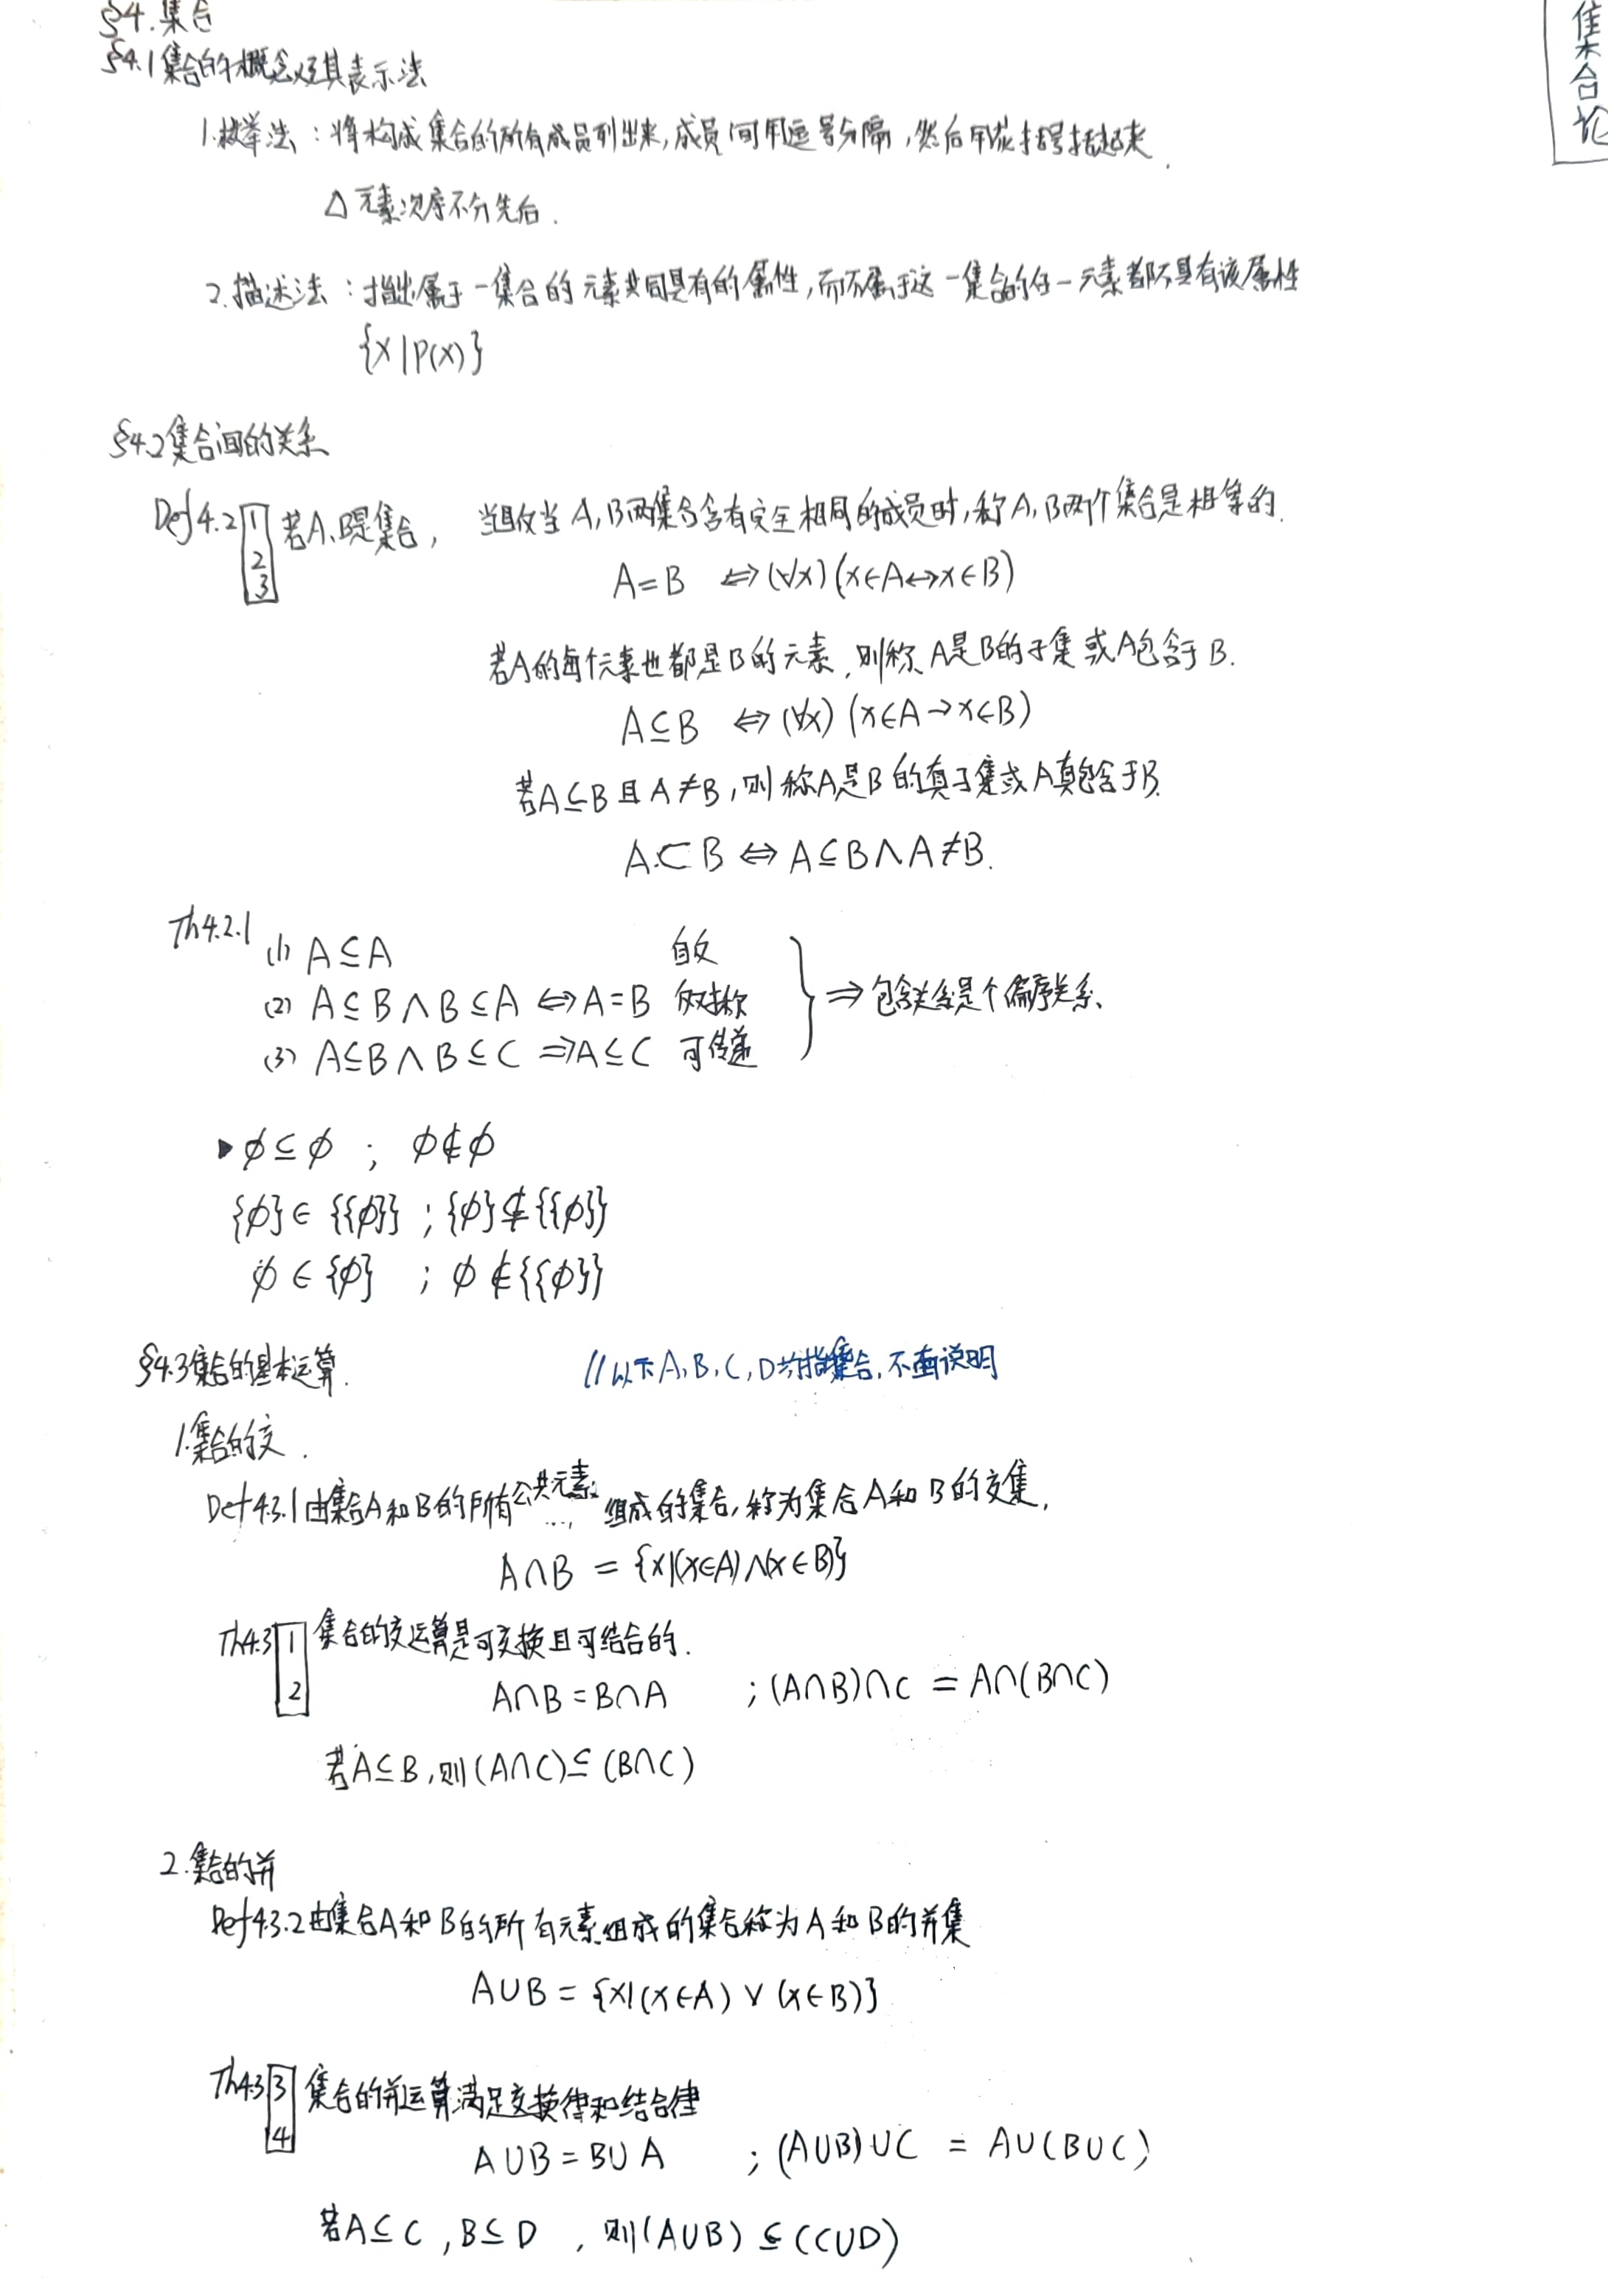 §4.集合
集合论
§4.1集合的概念及其表示法
1.枚举法：将构成集合的所有成员列出来,成员间用逗号分隔,然后用花括号括起来.
△元素次序不分先后.
2.描述法：指出属于一集合的元素共同具有的属性,而不属于这一集合的任一元素都不具有该属性
{x|P(x)}
§4.2集合间的关系
Def4.2 1 若A、B是集合, 当且仅当A,B两集合含有完全相同的成员时,称A,B两个集合是相等的.
2 A=B ⇔(∀x)(x∈A↔x∈B)
3
若A的每个元素也都是B的元素,则称A是B的子集或A包含于B.
A⊆B ⇔(∀x)(x∈A→x∈B)
若A⊆B且A≠B,则称A是B的真子集或A真包含于B.
A⊂B⇔A⊆B∧A≠B.
Th4.2.1
(1) A⊆A 自反
(2) A⊆B∧B⊆A⇔A=B 反对称 ⇒包含关系是个偏序关系.
(3) A⊆B∧B⊆C⇒A⊆C 可传递
▶ϕ⊆ϕ ; ϕ∉ϕ
{ϕ}∈{{ϕ}} ; {ϕ}⊈{{ϕ}}
ϕ∈{ϕ} ; ϕ∉{{ϕ}}
§4.3集合的基本运算. //以下A,B,C,D均指集合,不再说明
1.集合的交.
Def4.3.1由集合A和B的所有公共元素组成的集合,称为集合A和B的交集,
A∩B={x|(x∈A)∧(x∈B)}
Th4.3 1 集合的交运算是可交换且可结合的.
2 A∩B=B∩A ;(A∩B)∩C=A∩(B∩C)
若A⊆B,则(A∩C)⊆(B∩C)
2.集合的并
Def4.3.2由集合A和B的所有元素组成的集合称为A和B的并集
A∪B={x|(x∈A)∨(x∈B)}
Th4.3 3 集合的并运算满足交换律和结合律
4 A∪B=B∪A ;(A∪B)∪C=A∪(B∪C)
若A⊆C,B⊆D,则(A∪B)⊆(C∪D)